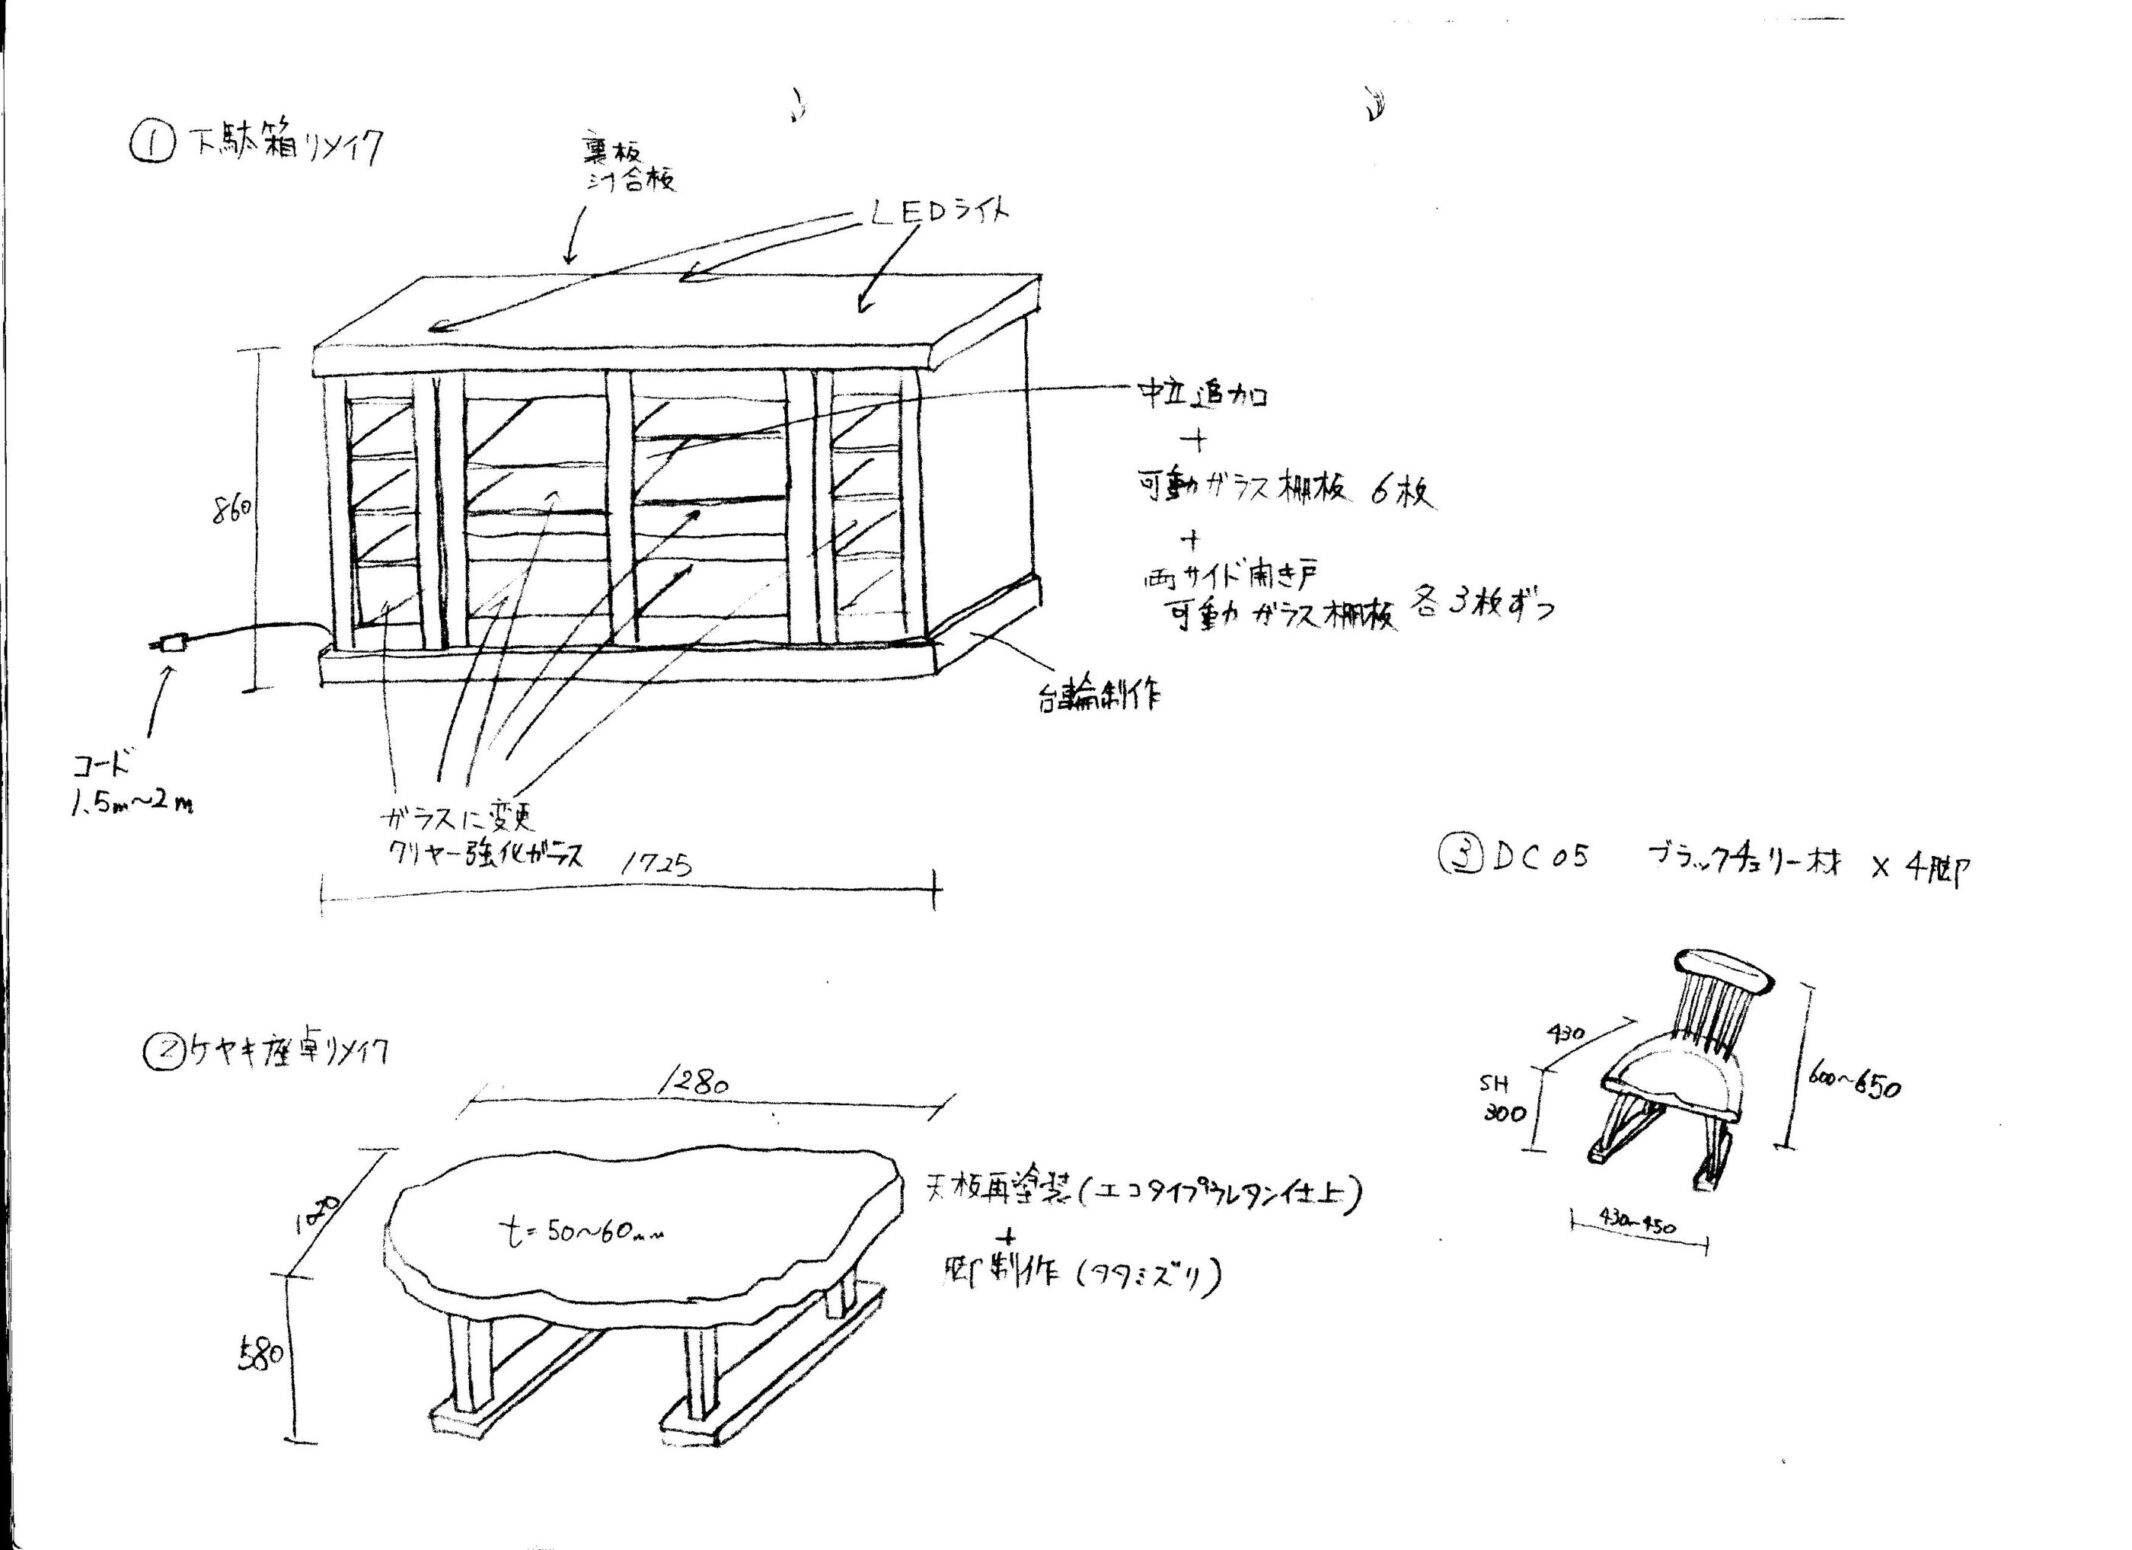 ① 下駄箱リメイク
裏板
合板
LEDライト
860
中立追加
+
可動ガラス棚板 6枚
+
両サイド開き戸
可動ガラス棚板 各3枚ずつ
台輪制作
コード
1.5m~2m
ガラスに変更
クリヤー強化ガラス
1725
② ケヤキ座卓リメイク
1280
t=50~60mm
580
天板再塗装(エコタイプウレタン仕上)
+
脚制作(タタミズリ)
③ DC05 ブラックチェリー材 × 4脚
430
SH
300
600~650
430~450